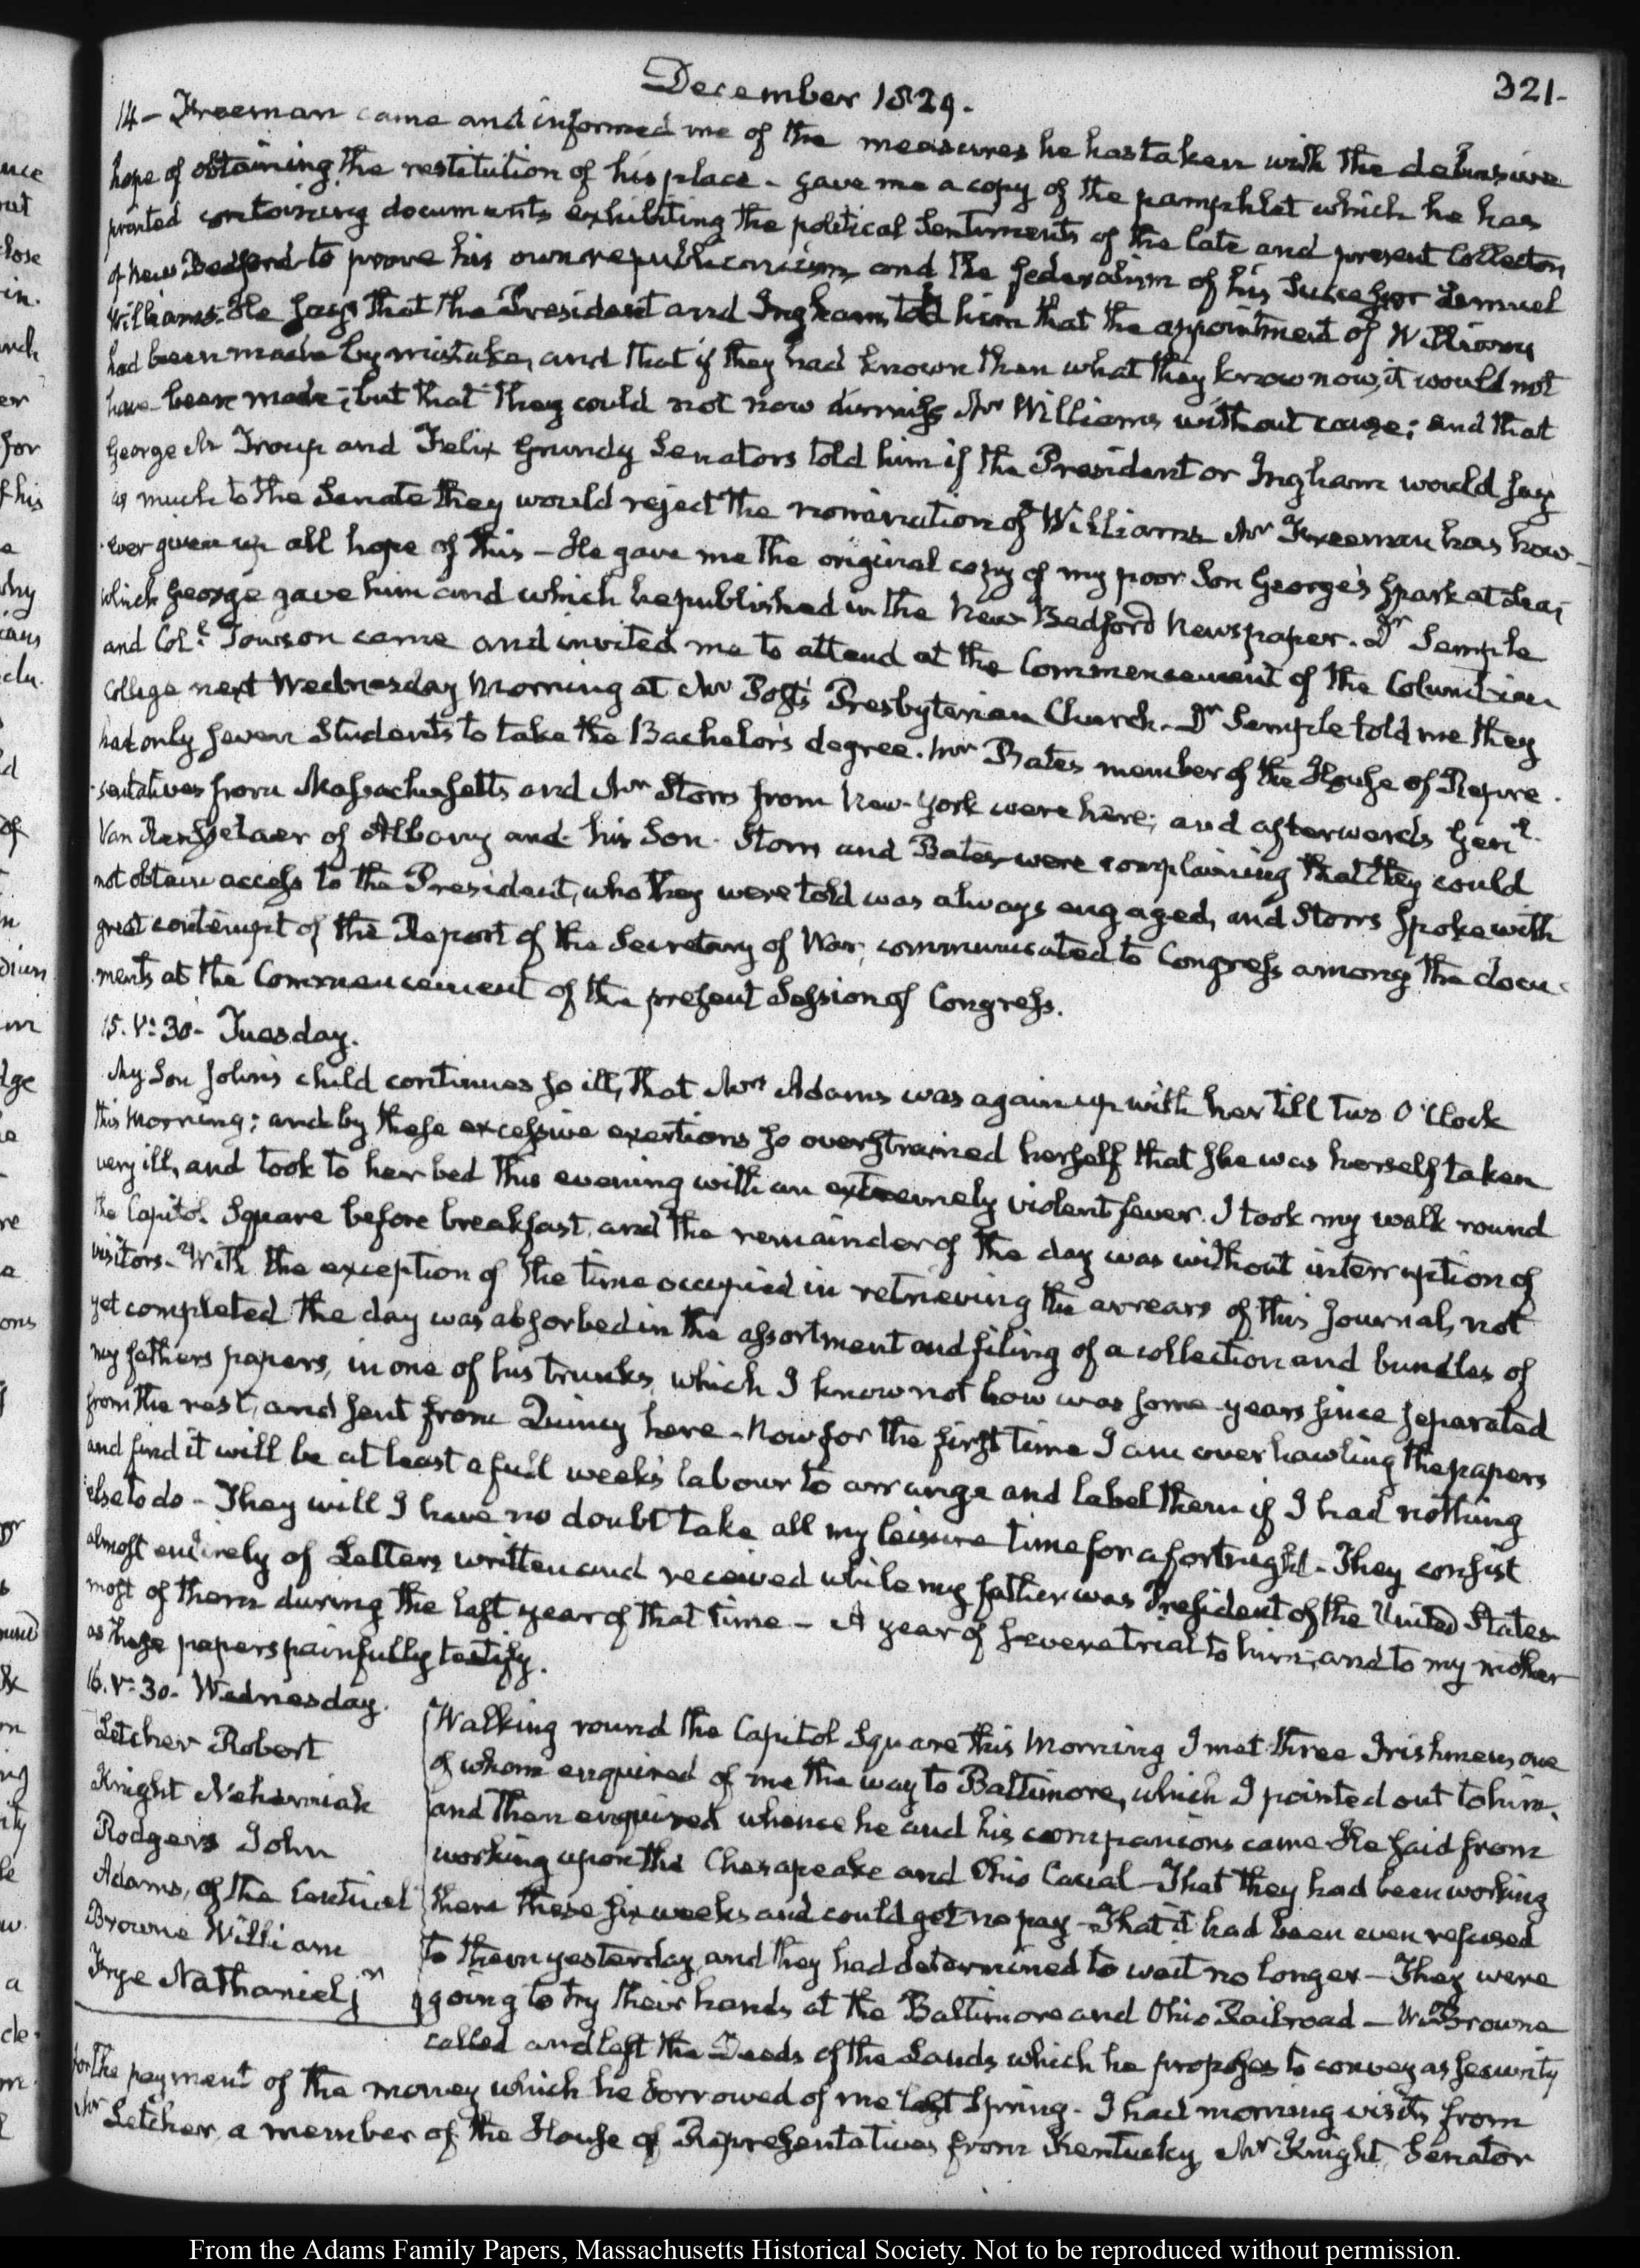 321.
December 1829.
14 — Freeman came and informed me of the measures he has taken with the delusive
hope of obtaining the restitution of his place - gave me a copy of the pamphlet which he has
printed containing documents exhibiting the political Sentiments of the late and present Collectors
of New Bedford to prove his own republicanism, and the federalism of his Successor Lemuel
Williams. He says that the President and Ingham, told him that the appointment of Williams
had been made by mistake, and that if they had known then what they know now, it would not
have been made; but that they could not now dismiss Mr Williams without cause; and that
George M Troup and Felix Grundy Senators told him if the President or Ingham would say
as much to the Senate they would reject the nomination of Williams. Mr Freeman has how-
-ever given up all hope of this — He gave me the original copy of my poor Son George's Spark at Sea,
which George gave him and which he published in the New-Bedford Newspaper. Dr Semple
and Coll. Towson came and invited me to attend at the Commencement of the Columbian
College next Wednesday Morning at Mr Post's Presbyterian Church - Dr Semple told me they
had only seven Students to take the Bachelor's degree. Mr Bates member of the House of Repre-
-sentatives from Massachusetts and Mr Storrs from New-York were here; and afterwards Genl.
Van Rensselaer of Albany and his Son. Storrs and Bates were complaining that they could
not obtain access to the President, who they were told was always engaged, and Storrs spoke with
great contempt of the Report of the Secretary of War, communicated to Congress among the docu-
-ments at the Commencement of the present Session of Congress.
15. V: 30. Tuesday.
My Son John's child continues so ill, that Mrs Adams was again up with her till two O'Clock
this Morning; and by these excessive exertions so overstrained herself that she was herself taken
very ill, and took to her bed this evening with an extremely violent fever. I took my walk round
the Capitol Square before breakfast, and the remainder of the day was without interruption of
visitors - With the exception of the time occupied in retrieving the arrears of this Journal, not
yet completed the day was absorbed in the assortment and filing of a collection and bundles of
my fathers papers, in one of his trunks, which I know not how was some years since separated
from the rest, and sent from Quincy here - Now for the first time I am overhawling the papers
and find it will be at least a full week's labour to arrange and label them if I had nothing
else to do - They will I have no doubt take all my leisure time for a fortnight - They consist
almost entirely of Letters written and received while my father was President of the United States
most of them during the last year of that time — A year of severe trial to him, and to my mother
as these papers painfully testify.
16. V: 30. Wednesday.
Letcher Robert
Knight Nehemiah
Rodgers John
Adams, of the Centinel
Browne William
Frye Nathaniel jr
Walking round the Capitol Square this Morning I met three Irishmen, one
of whom enquired of me the way to Baltimore, which I pointed out to him,
and then enquired whence he and his companions came He said from
working upon the Chesapeake and Ohio Canal - That they had been working
there these six weeks and could get no pay - That it had been even refused
to them yesterday, and they had determined to wait no longer — They were
going to try their hands at the Baltimore and Ohio Railroad — W. Browne
called and left the Deeds of the Lands which he proposes to convey as security
for the payment of the money which he borrowed of me last Spring - I had morning visits from
Mr Letcher, a member of the House of Representatives from Kentucky, Mr Knight, Senator
From the Adams Family Papers, Massachusetts Historical Society. Not to be reproduced without permission.